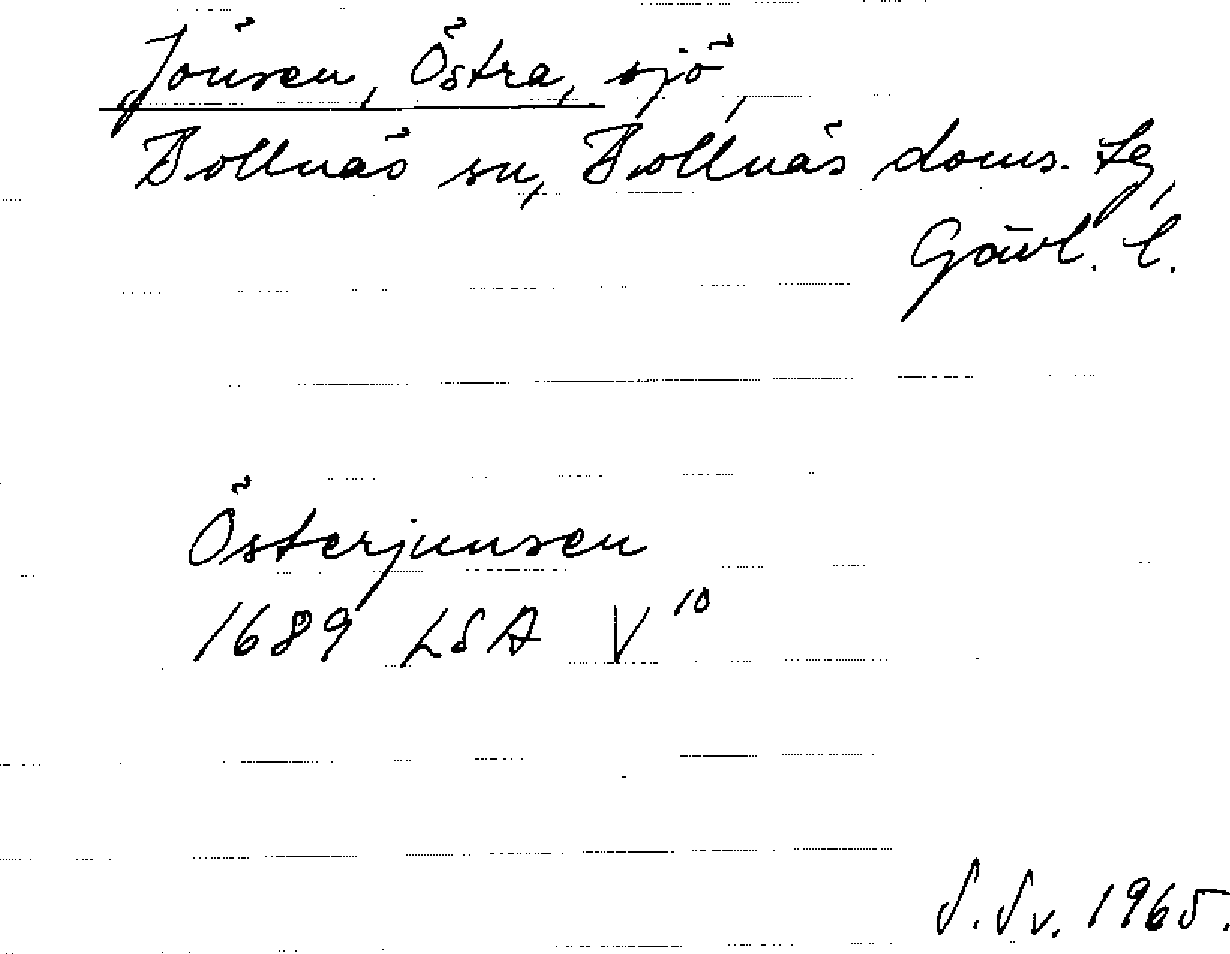 Jönsen, Östra, sjö,
Bollnäs sn, Bollnäs doms. tg,
Gävl. l.
Österjunsen
1689 LSA V¹⁰
S. Sv. 1965.